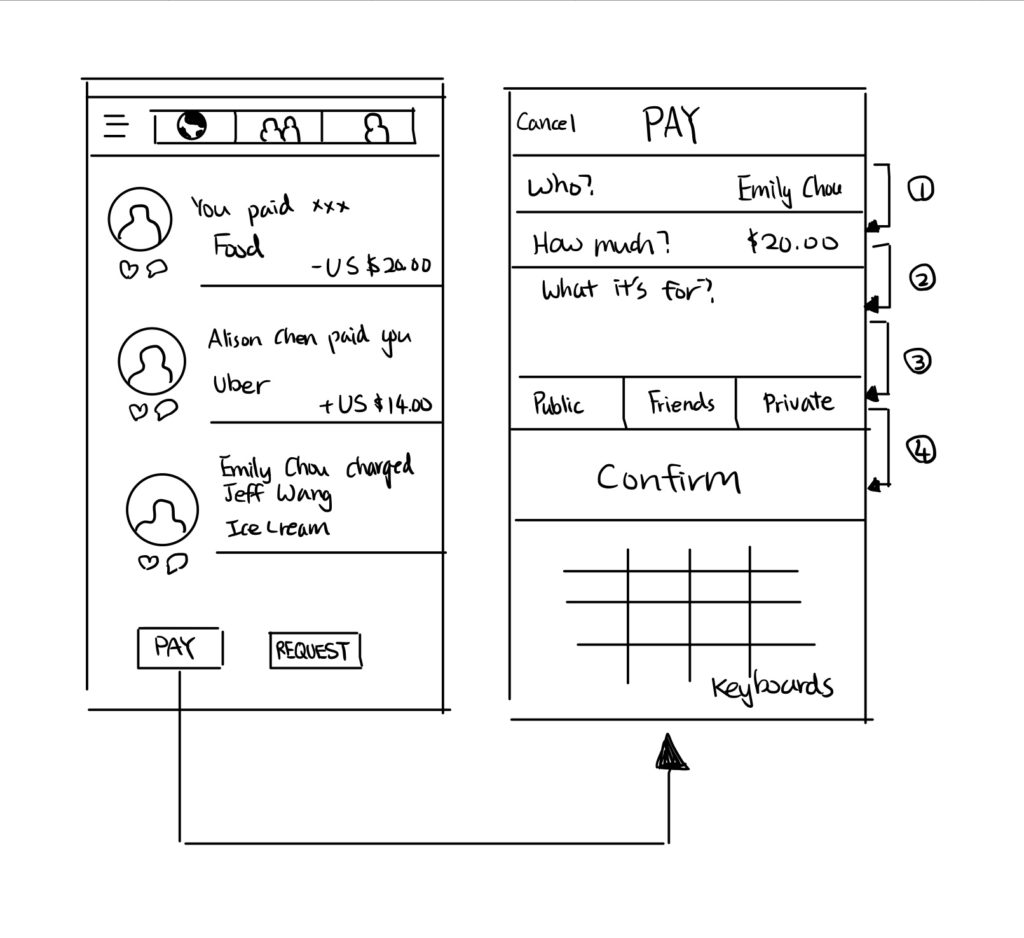 You paid xxx
Food
-US $20.00
Alison Chen paid you
Uber
+US $14.00
Emily Chou charged
Jeff Wang
Ice cream
PAY
REQUEST
Cancel
PAY
Who?
Emily Chou
How much?
$20.00
What it's for?
Public
Friends
Private
Confirm
Keyboards
1
2
3
4